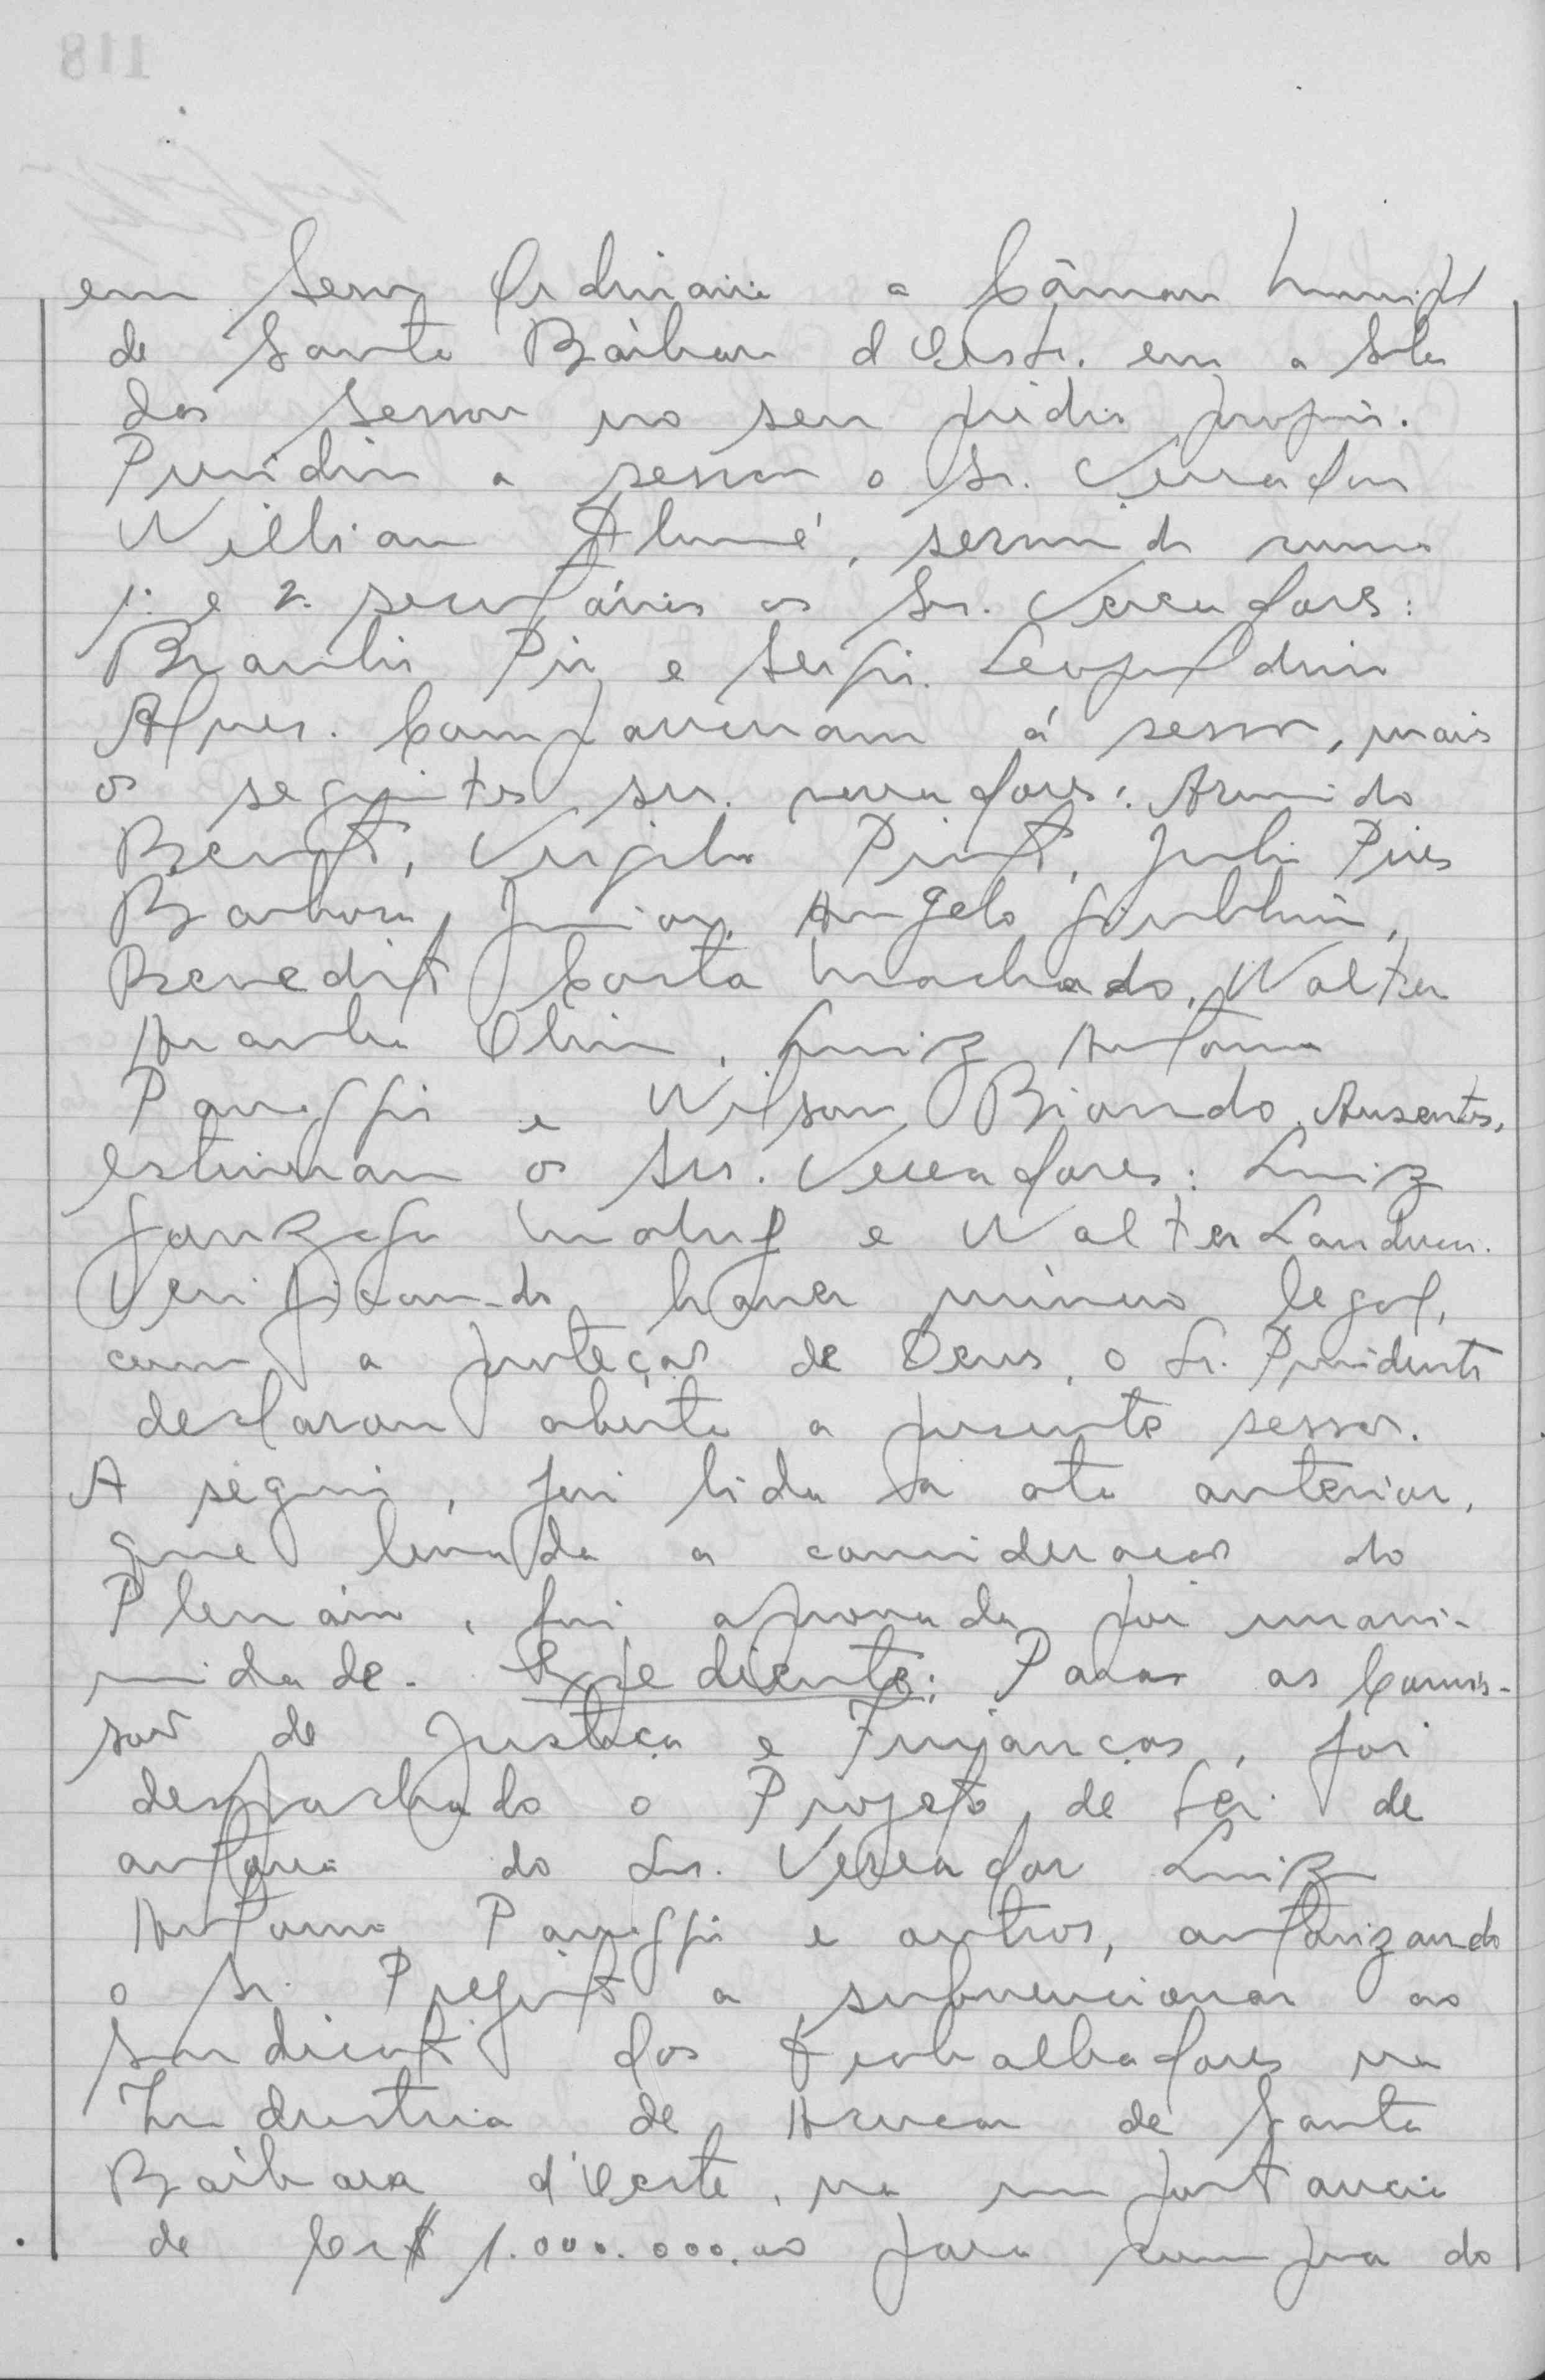 em Sessão Ordinaria a Câmara Municipal
de Santa Bárbara d'Oeste, em a Sala
das Sessões no seu prédio proprio.
Presidiu a sessão o Sr. Vereador
Willian Alumé, servindo como
1º e 2º secretários os Srs. Vereadores:
Braulio Pio e Sergio Leopoldino
Alves. Compareceram á sessão, mais
os seguintes srs. vereadores: Armindo
Bento, Virgilio Pinto, Julio Pires
Barbosa Junior, Angelo Giubbina,
Benedito Costa Machado, Walter
Aranha Olivi, Luiz Antonio
Panaggio e Wilson Biondo. Ausentes,
estiveram os Srs. Vereadores: Luiz
Gonzaga Maluf e Walter Landucci.
Verificando haver número legal,
com a proteção de Deus, o Sr. Presidente
declarou aberta a presente sessão.
A seguir, foi lida a ata anterior,
que levada a consideração do
Plenário, foi aprovada por unani-
midade. Expediente: Para as Comis-
sões de Justiça e Finanças, foi
despachado o Projeto de Lei de
autoria do Sr. Vereador Luiz
Antonio Panaggio e outros, autorizando
o Sr. Prefeito a subvencionar ao
Sindicato dos Trabalhadores na
Industria de Açucar de Santa
Bárbara d'Oeste, na importancia
de Cr$ 1.000.000,00 para compra do